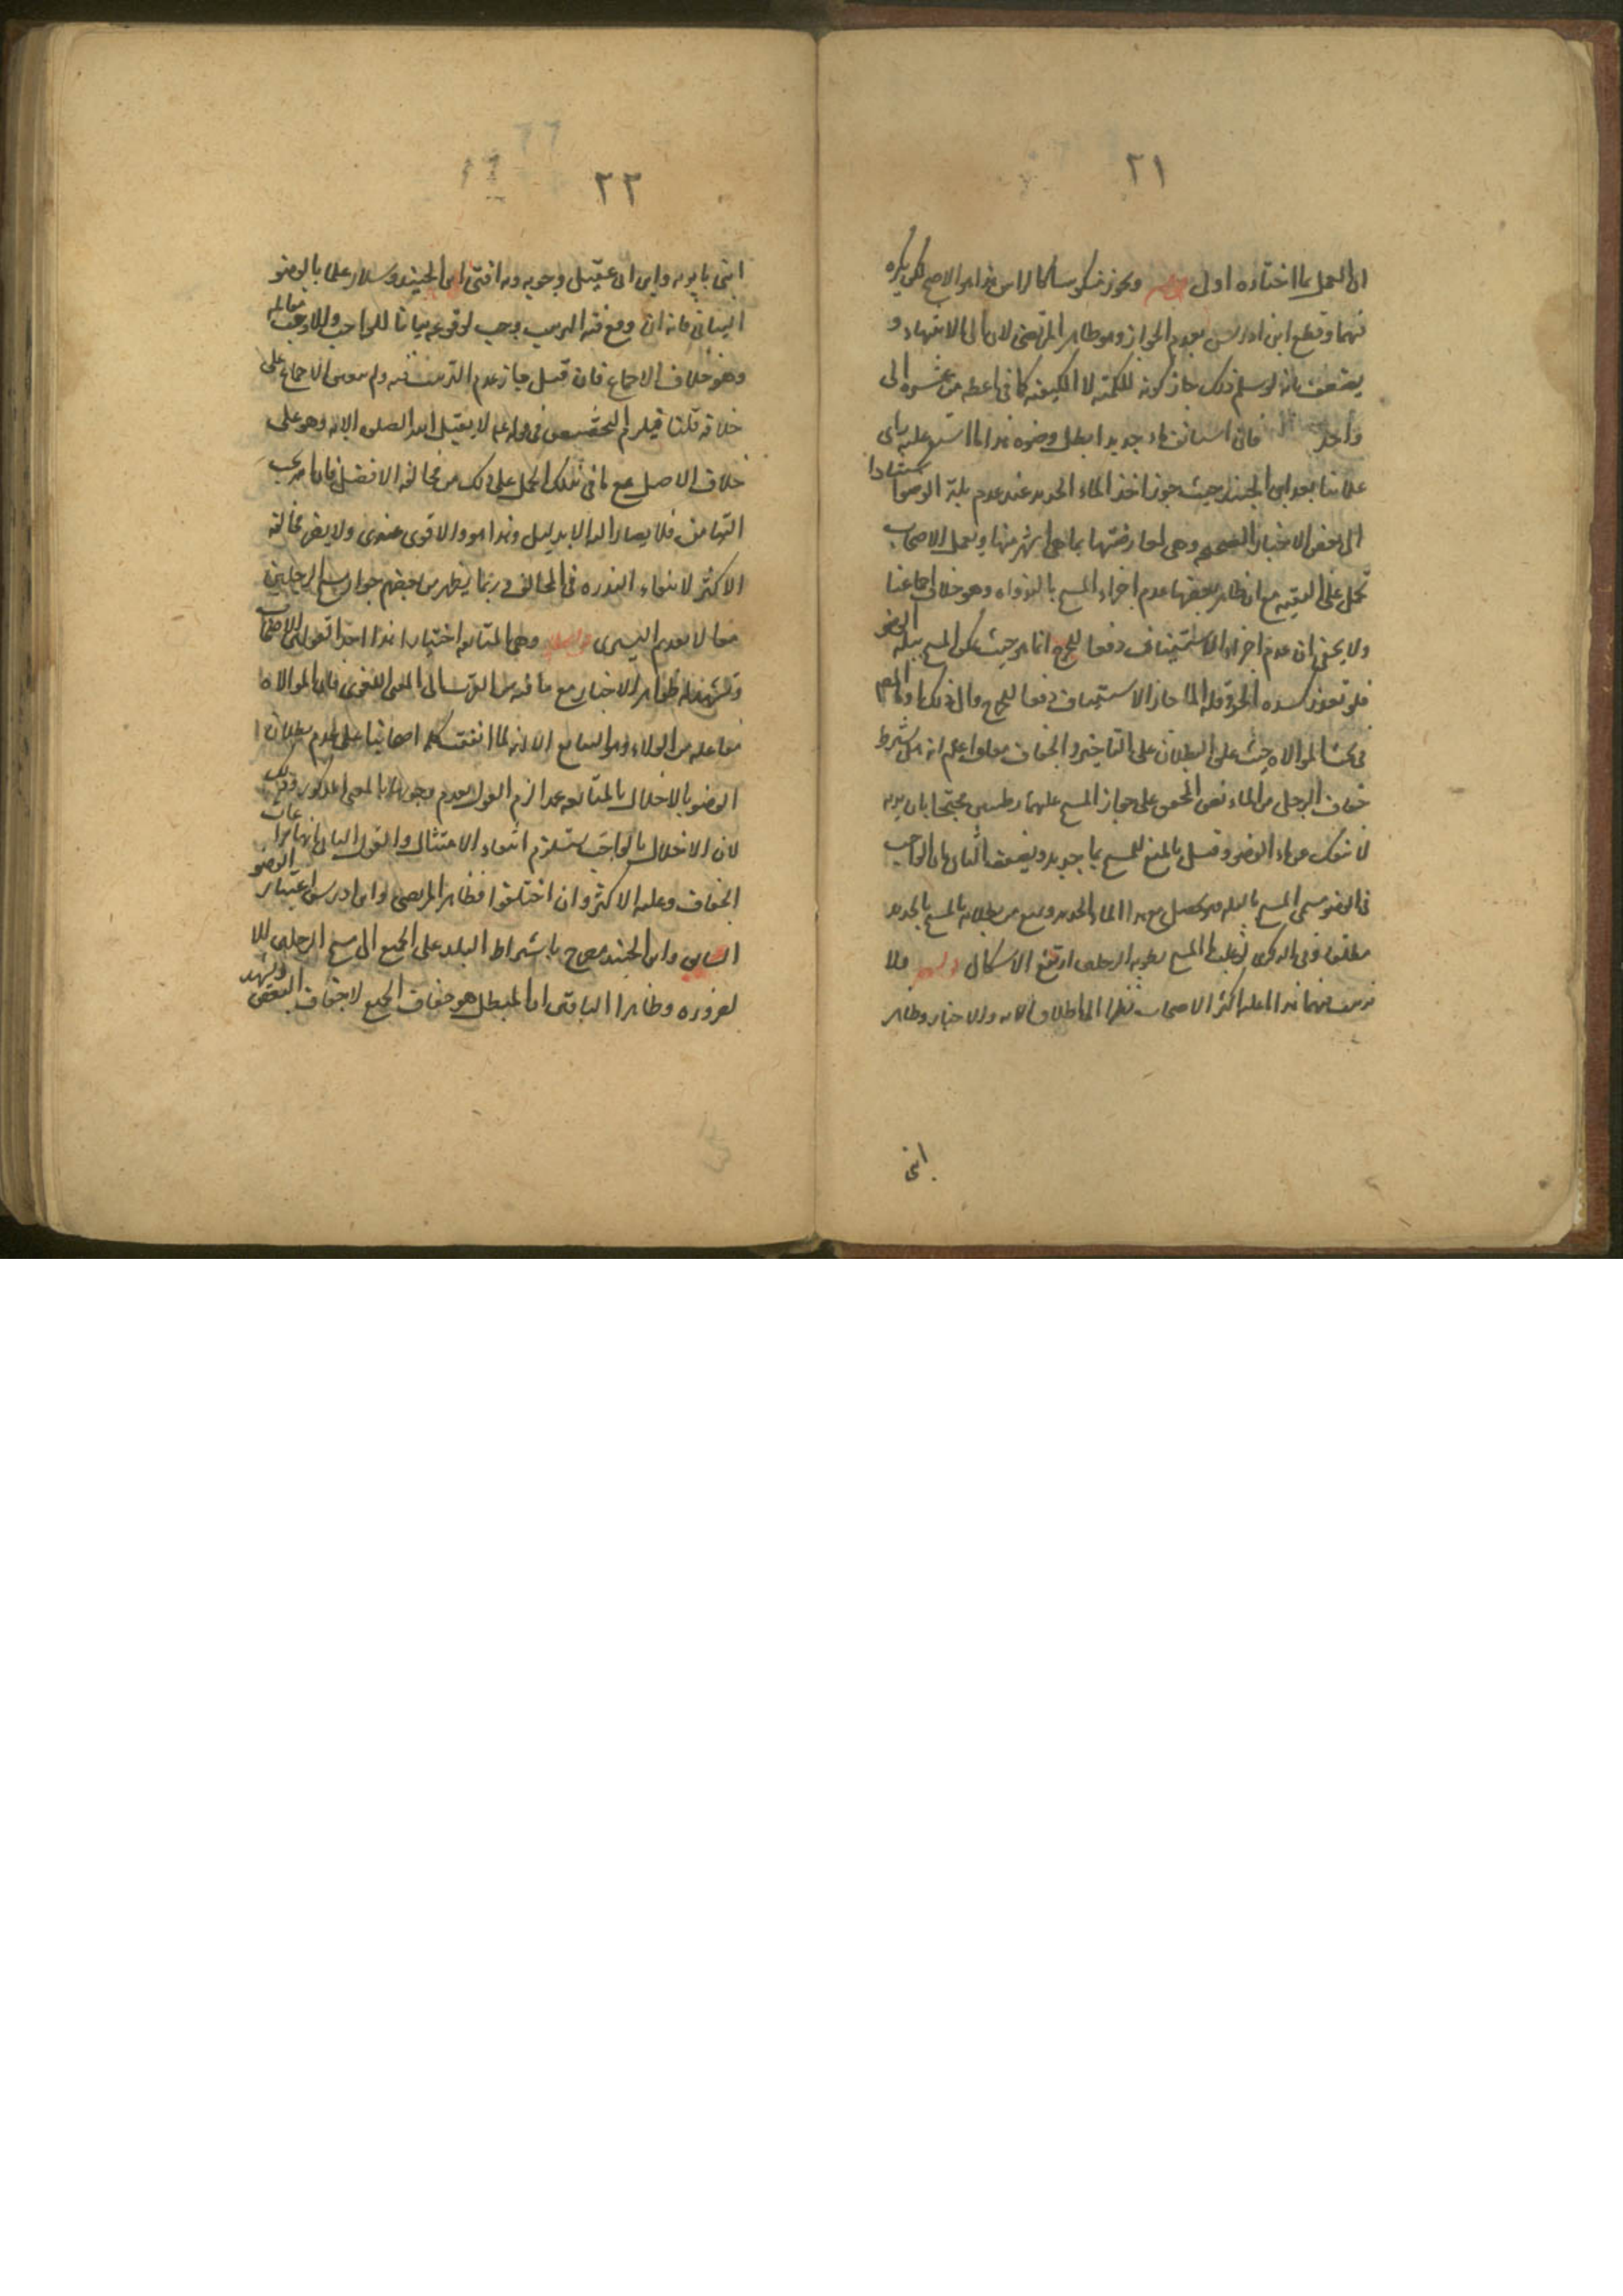 ٢١
ان العمل بما اختاره اولى ويجوز منكوسا كالراس هذا هو الاصح لكن يكره
فيهما وقطع ابن ادريس بعدم الجواز وهو ظاهر المرتضى لان الى لانتهاء و
يضعف بانه لو سلم ذلك جاز كونه للكمية لا الكيفية كما في اعطه من عشرة الى
واحد فان استانف ماء جديدا بطل وضوءه هذا ما استقر عليه راى
علمائنا بعد ابن الجنيد حيث جوز اخذ الماء الجديد عند عدم بلة الوضوء استنادا
الى بعض الاخبار الصحيحة وهى لمعارضتها بما هى اشهر منها وبعمل الاصحاب
تحمل على التقيه مع ان ظاهر بعضها عدم اجزاء المسح بالنداوه وهو خلاف اجماعنا
ولا يخفى ان عدم اجزاء الاستيناف دفعا للحرج انما هو حيث يمكن المسح ببلة الوضوء
فلو تعذر لشدة الحر وقلة الماء جاز الاستيناف دفعا للحرج
في بحث الموالاه حيث علق البطلان على التاخير والجفاف معا واعلم انه هل يشترط
جفاف الرجل من الماء نص المحقق على جواز المسح عليهما رطبتين محتجا بان يديه
لا تنفك عن ماء الوضوء وقيل بالمنع للمسح بماء جديد ويضعف الثاني بان الواجب
في الوضوء مسمى المسح بالبله وقد حصل مع هذا الماء الجديد ويمنع من بطلانه بالمسح بالجديد
مطلقا وفي الذكرى لو غلب ماء المسح رطوبة الرجلين ارتفع الاشكال ولا
ترتيب فيهما هذا ما عليه اكثر الاصحاب نظرا الى اطلاق الايه والاخبار وظاهر
ابنى
٢٢
ابنى بابويه وابن ابى عقيل وجوبه وبه افتى ابن الجنيد وسلار عملا بالوضوء
البيانى فانه ان وقع فيه الترتيب وجب لوقوعه بيانا للواجب والا وجب مقابله
وهو خلاف الاجماع فان قيل جاز عدم الترتيب فيه ولم يتعين الاجماع على
خلافه قلنا فيلزم التخصيص في قوله عم لا يقبل الله الصلوه الا به وهو على
خلاف الاصل مع ما في تلك الحمل على ذلك من مخالفة الافضل فانا نوجب
التيامن فلا يصار اليه الا بدليل وهذا هو الاقوى عندى ولا يضر مخالفة
الاكثر لانتفاء الندره في المخالف وربما يظهر من بعضهم جواز مسح الرجلين
معا لا تقديم اليسرى وهى المتابعه اختيارا هذا احد اقوال الاصحاب
وتشهد له ظواهر الاخبار مع ما فيه من القرب الى المعنى اللغوى فان الموالاه
مفاعله من الولاء وهو التتابع الا انه لما اتفقت كلمه اصحابنا على عدم بطلان
الوضوء بالاخلال بالمتابعه عمدا لزم القول بعدم وجوبها بالمعنى المذكور وذلك
لان الاخلال بالواجب يستلزم انتفاء الامتثال والقول الثانى انها مراعات
الجفاف وعليه الاكثر وان اختلفوا فظاهر المرتضى وابن ادريس اعتبار الوضوء
السابق وابن الجنيد صرح باشتراط البلل على الجميع الى مسح الرجلين للا
لضروره وظاهر الباقين ان المبطل هو جفاف الجميع لا جفاف البعض ويشهد